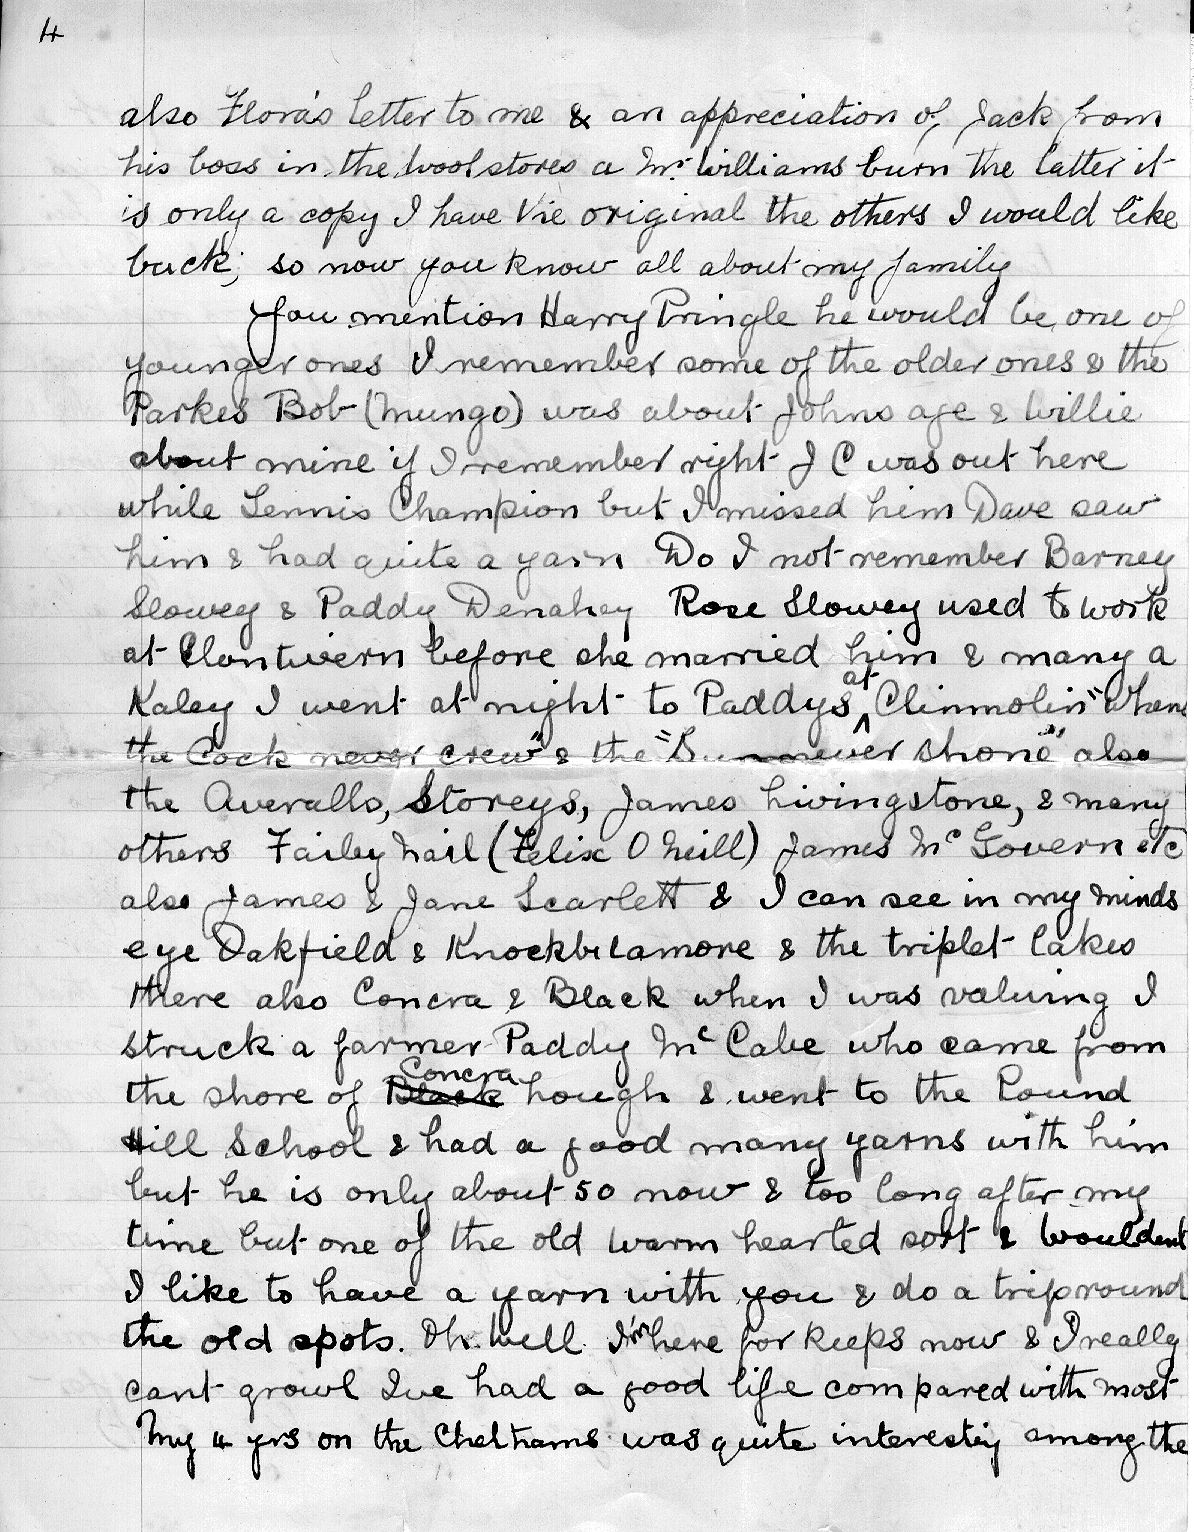 4
also Flora's letter to me & an appreciation of Jack from
his boss in the wool stores a Mr Williams burn the latter it
is only a copy I have the original the others I would like
back; so now you know all about my family
You mention Harry Pringle he would be one of
younger ones I remember some of the older ones & the
Parkes Bob (Mungo) was about Johns age & Willie
about mine if I remember right J C was out here
while Tennis Champion but I missed him Dave saw
him & had quite a yarn Do I not remember Barney
Slowey & Paddy Denahey Rose Slowey used to work
at Clontivern before she married him & many a
Kaley I went at night to Paddys at Clinmolin "where
the Cock never crew" & the "Sun never shone" also
the Averalls, Storeys, James Livingstone, & many
others Failey Nail (Felix O Neill) James Mc Govern etc
also James & Jane Scarlett & I can see in my minds
eye Oakfield & Knockbilamore & the triplet lakes
there also Concra & Black when I was valuing I
struck a farmer Paddy Mc Cabe who came from
the shore of Black Concra Lough & went to the Round
Hill School & had a good many yarns with him
but he is only about 50 now & too long after my
time but one of the old warm hearted sort & wouldent
I like to have a yarn with you & do a trip round
the old spots. Oh. well. I'm here for keeps now & I really
cant growl Ive had a good life compared with most
My 4 yrs on the Chathams was quite interesting among the